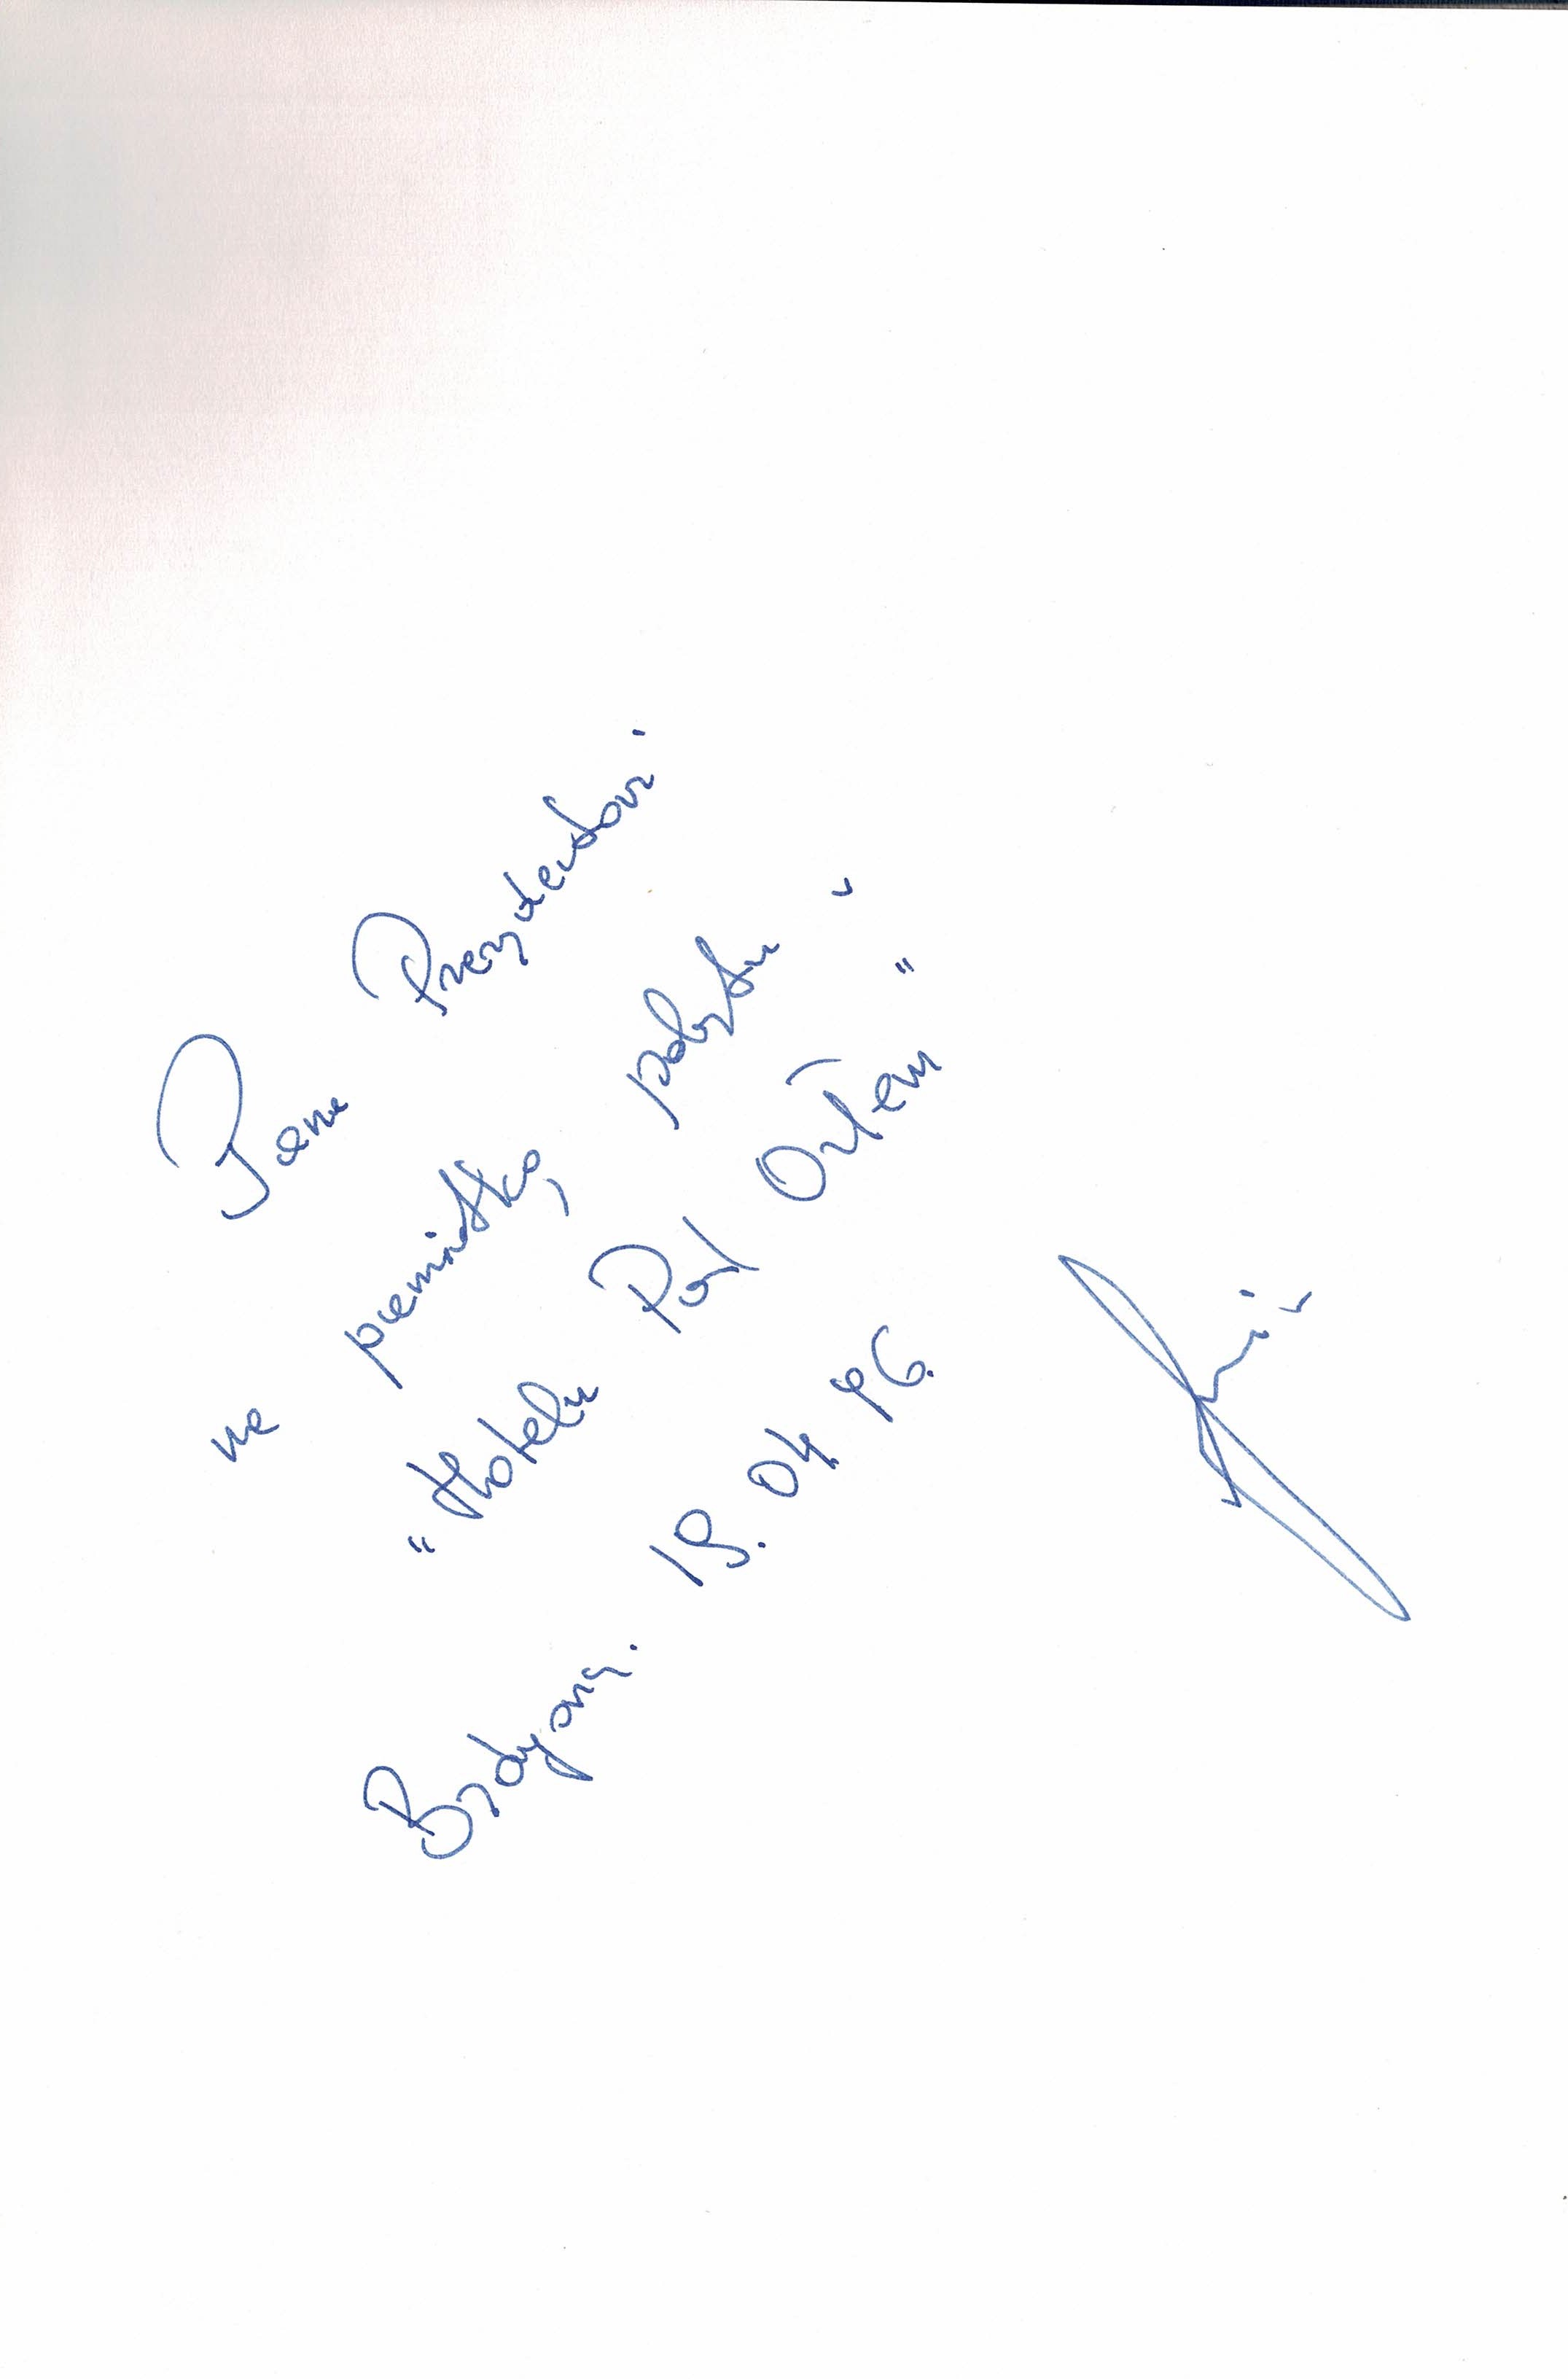 Panu Prezydentowi
na pamiątkę pobytu w
"Hotelu Pod Orłem"
Bydgoszcz. 19.04.96.